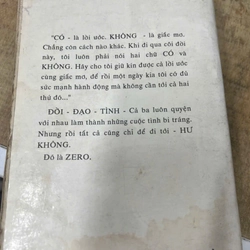 "CÓ - là lời ước. KHÔNG - là giấc mơ.
Chẳng còn cách nào khác. Khi đi qua cõi đời
này, tôi luôn phải nói hai chữ CÓ và
KHÔNG. Hãy cho tôi giữ kín được cả lời ước
cùng giấc mơ, để rồi một ngày kia tôi có đủ
sức mạnh hành động mà không cần tới cả hai
thứ đó..."
ĐỜI - ĐẠO - TÌNH - Cả ba luôn quyện
với nhau làm thành những cuộc tình bi tráng.
Nhưng rồi tất cả cũng chỉ để đi tới - HƯ
KHÔNG.
Đó là ZERO.